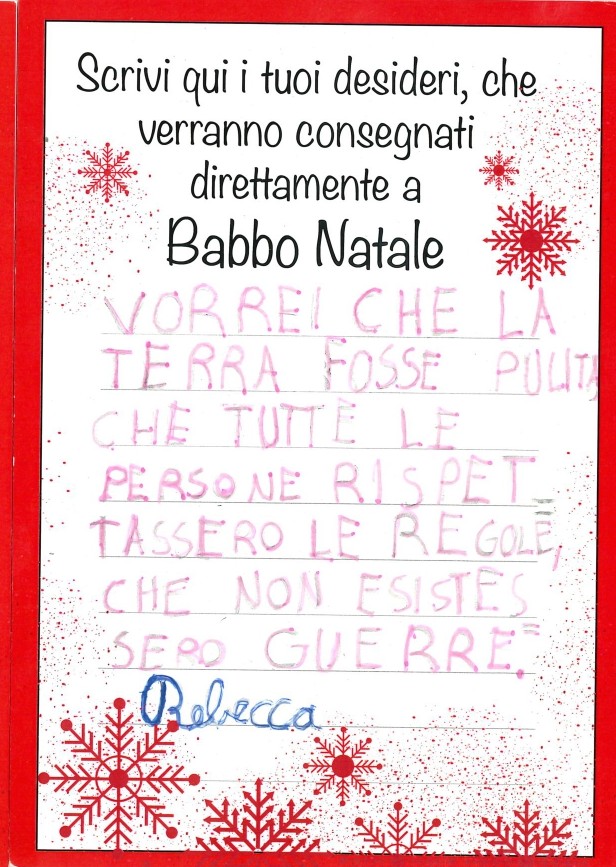 Scrivi qui i tuoi desideri, che
verranno consegnati
direttamente a
Babbo Natale
VORREI CHE LA
TERRA FOSSE PULITA
CHE TUTTE LE
PERSONE RISPET=
TASSERO LE REGOLE,
CHE NON ESISTES=
SERO GUERRE.
Rebecca